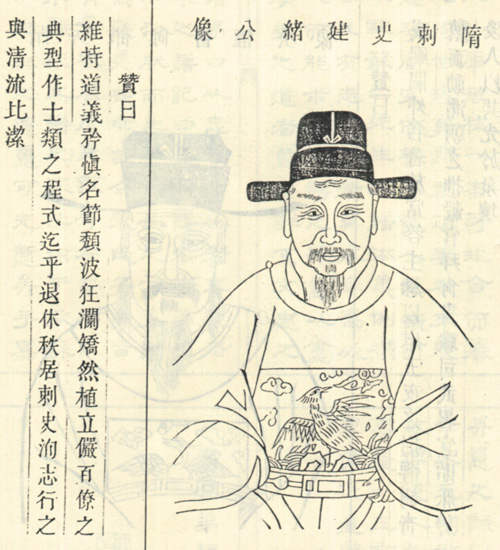 隋刺史建緒公像
贊曰
維持道義矜慎名節頹波狂瀾矯然植立儼百僚之
典型作士類之程式迄乎退休秩居刺史洵志行之
與清流比潔